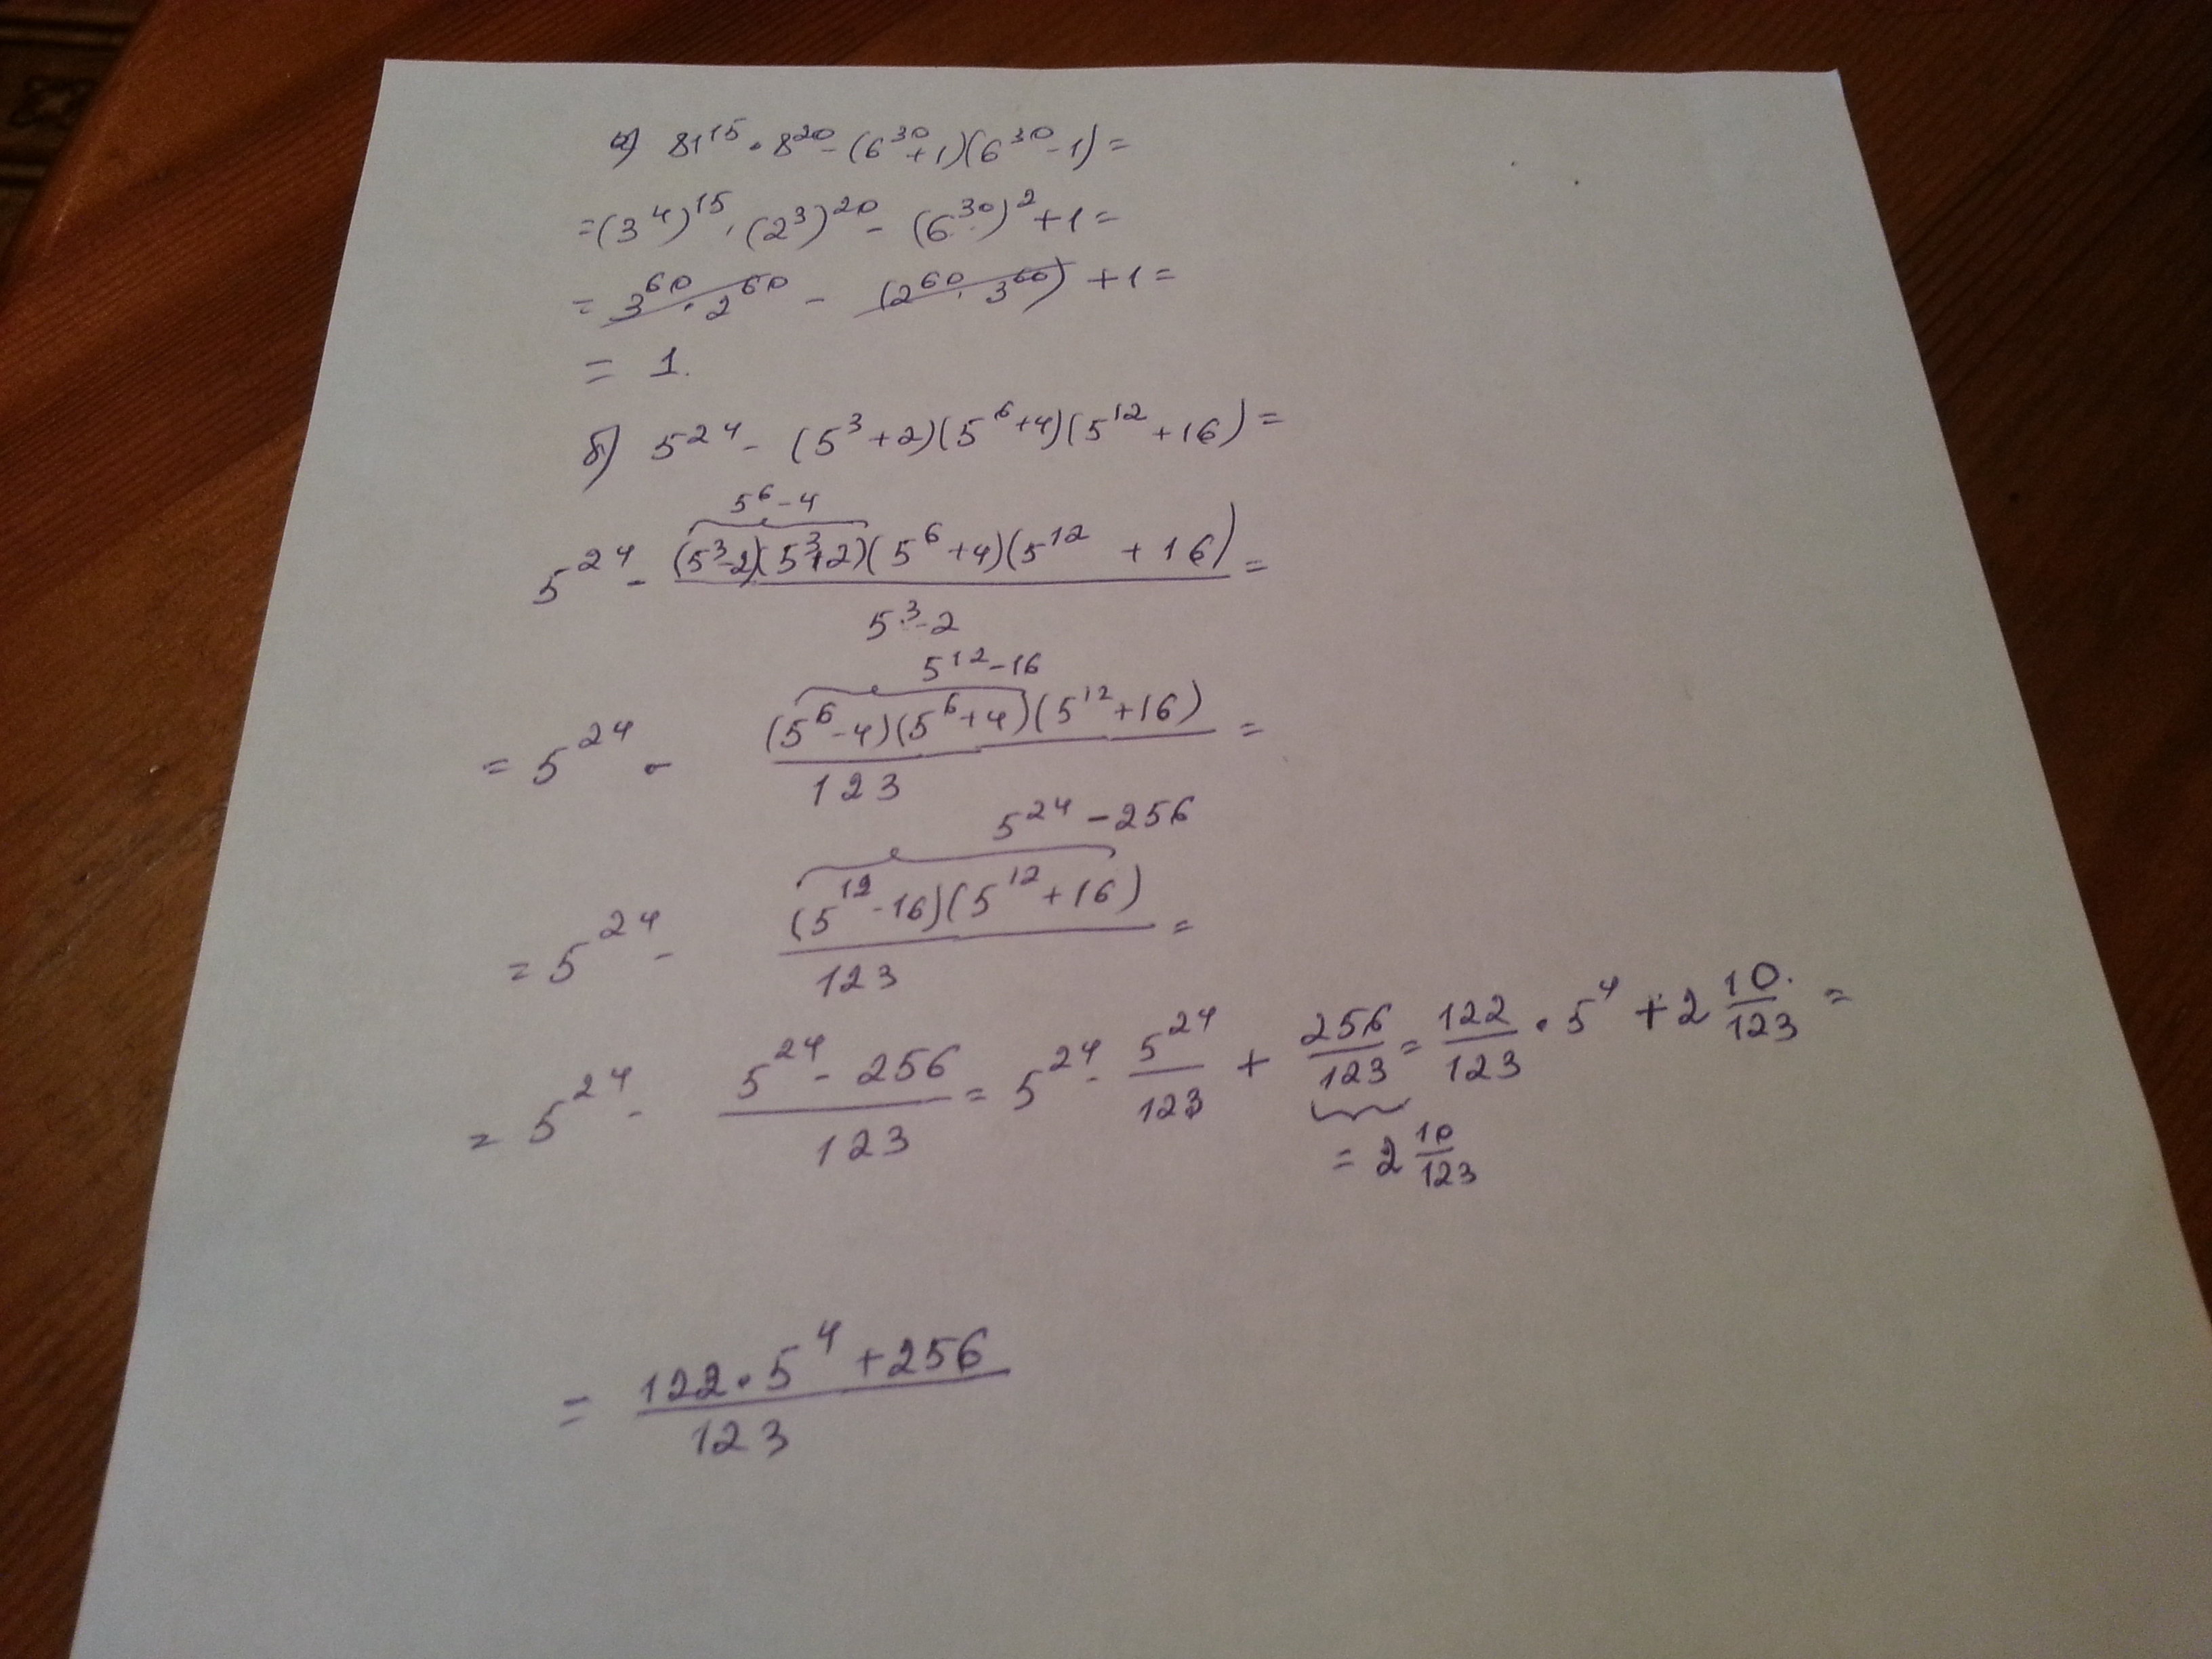 а) 81^15 · 8^20 - (6^30 + 1)(6^30 - 1) =
= (3^4)^15 · (2^3)^20 - (6^30)^2 + 1 =
= 3^60 · 2^60 - (2^60 · 3^60) + 1 =
= 1.
б) 5^24 - (5^3 + 2)(5^6 + 4)(5^12 + 16) =
5^6 - 4
5^24 - (5^3 - 2)(5^3 + 2)(5^6 + 4)(5^12 + 16) =
5^3 - 2
5^12 - 16
= 5^24 - (5^6 - 4)(5^6 + 4)(5^12 + 16) =
123
5^24 - 256
= 5^24 - (5^12 - 16)(5^12 + 16) =
123
= 5^24 - (5^24 - 256)/123 = 5^24 - 5^24/123 + 256/123 = 122/123 · 5^4 + 2 10/123 =
= 2 10/123
= (122 · 5^4 + 256)/123